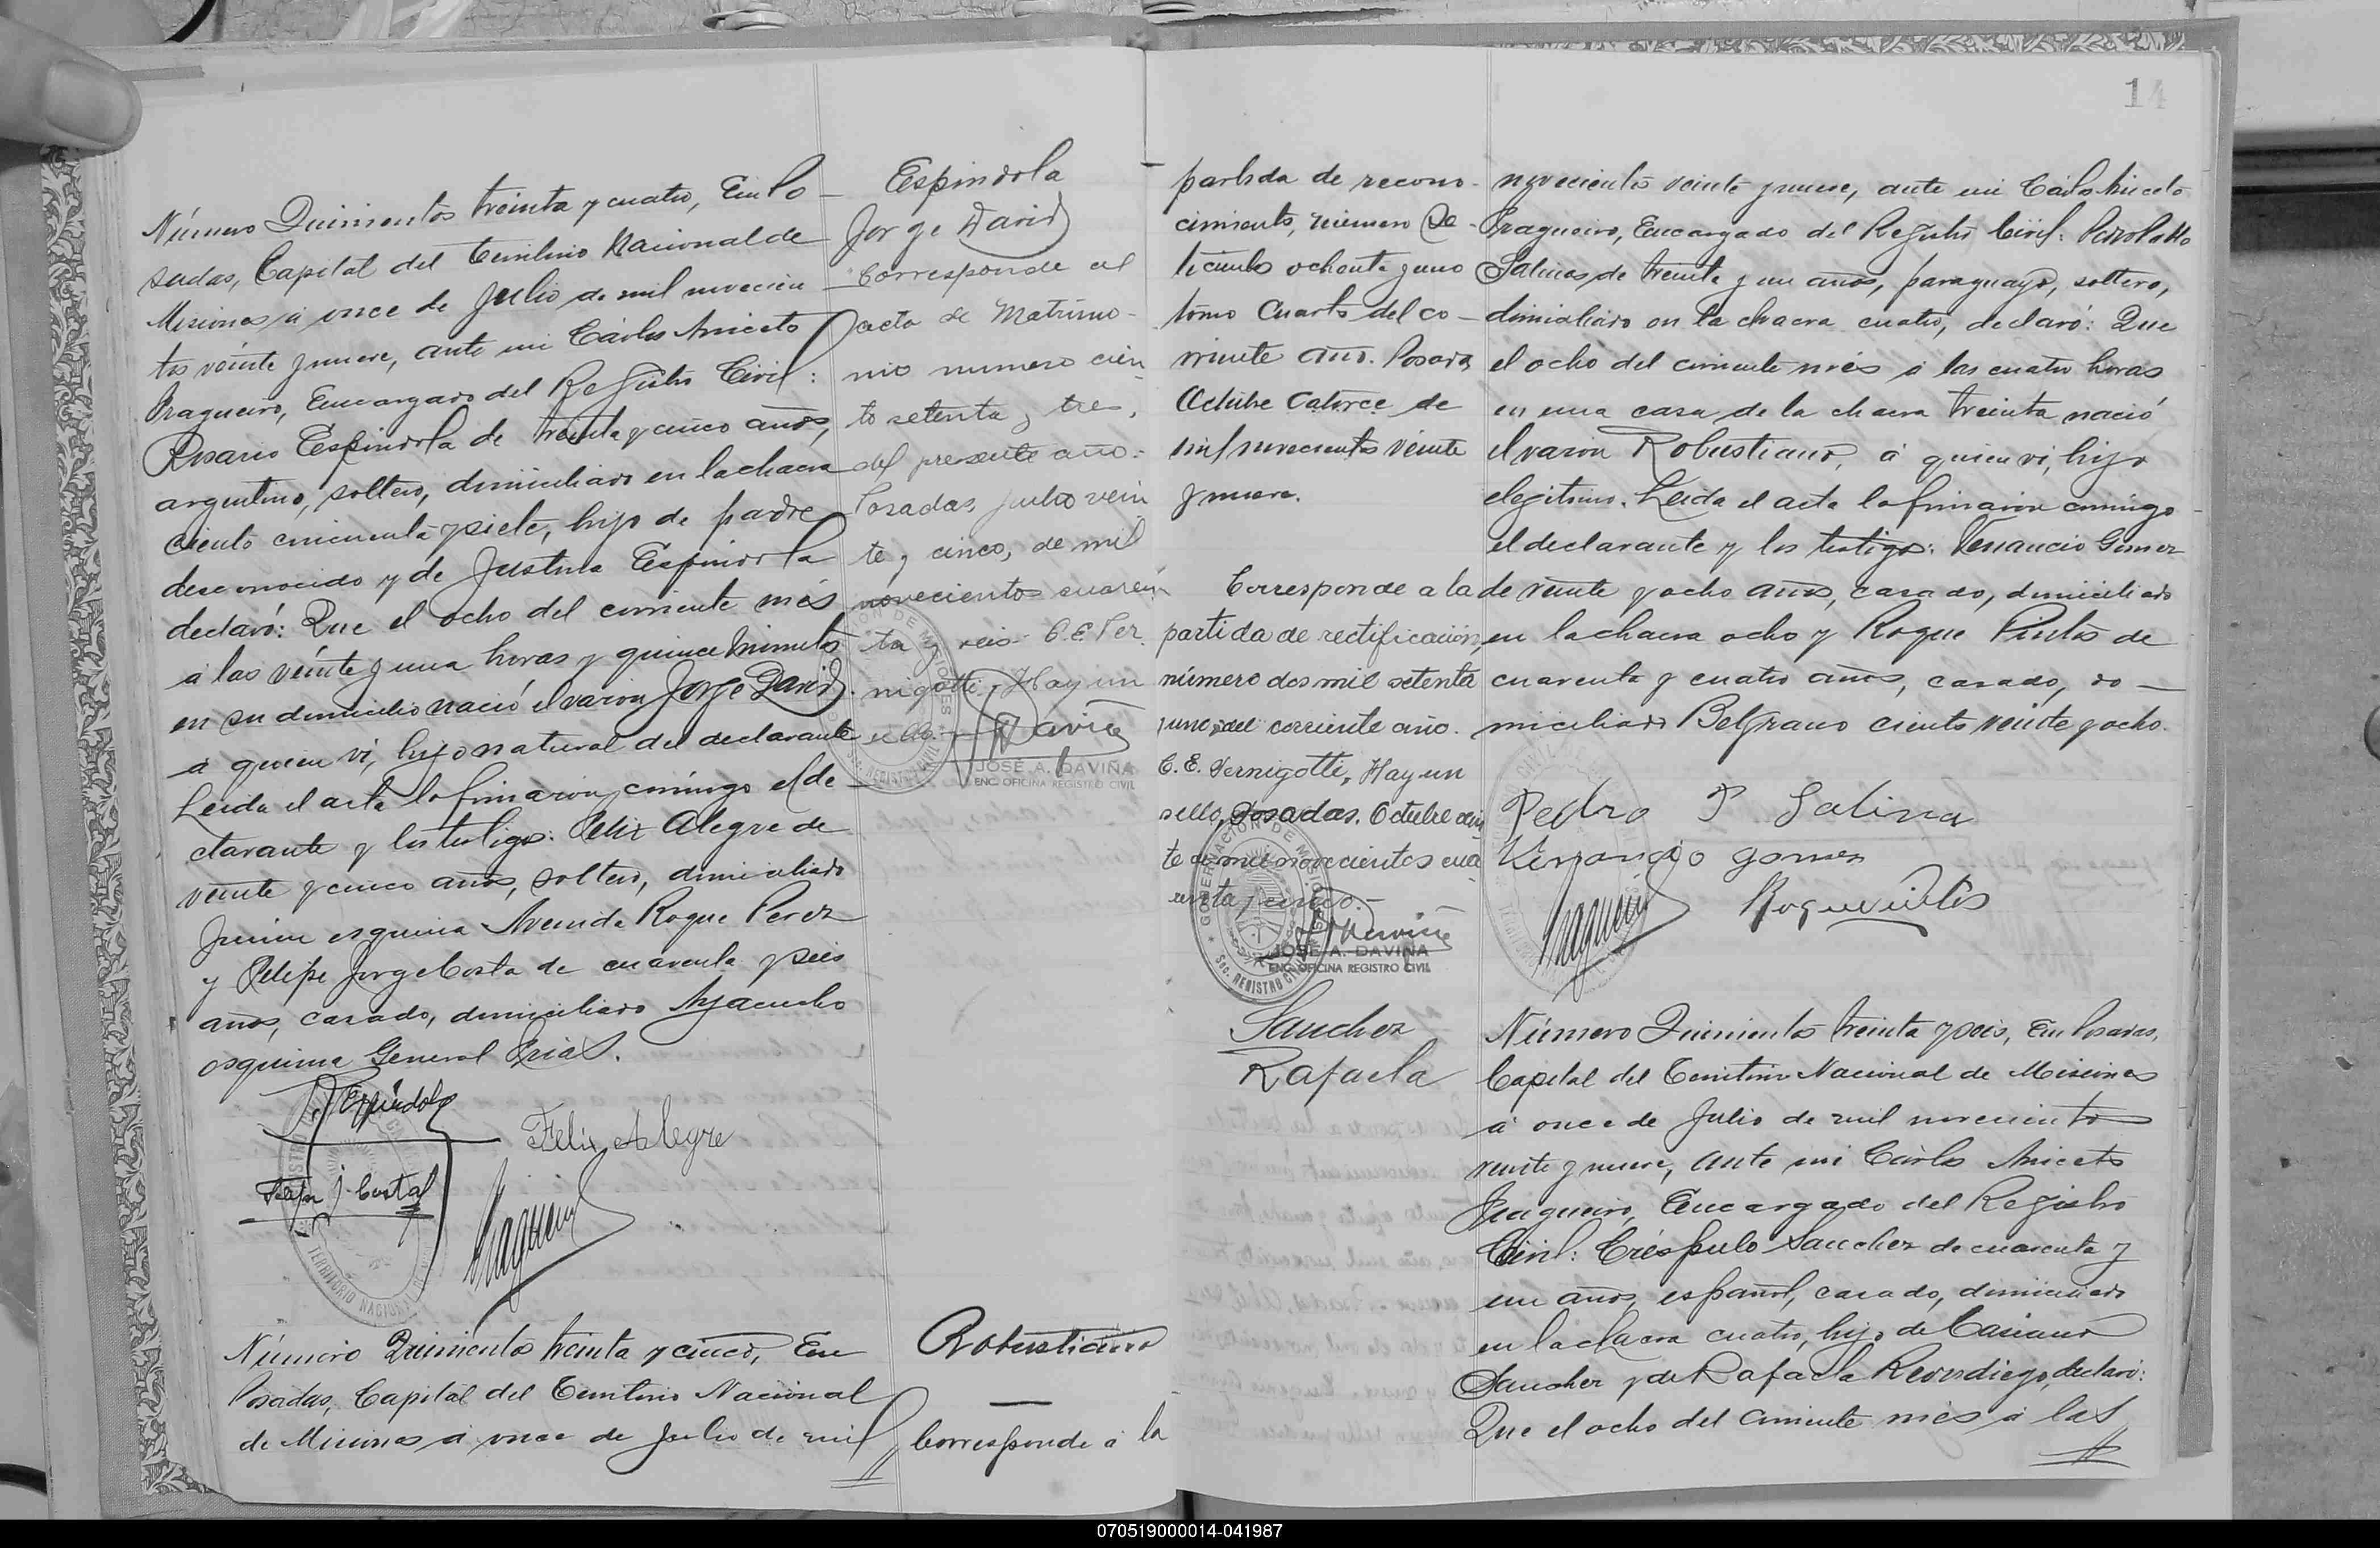 Número Quinientos treinta y cuatro, En Po-
sadas, Capital del Territorio Nacional de
Misiones á once de Julio de mil novecien
tos veinte y nueve, ante mi Cárlos Aniceto
Fragueiro, Encargado del Registro Civil:
Rosario Espindola de treinta y cinco años,
argentino, soltero, domiciliado en la chacra
ciento cincuenta y siete, hijo de padre
desconocido y de Justina Espindola
declaró: Que el ocho del corriente mes
a las veinte y una horas y quince minutos
en su domicilio nació el varon Jorge David
á quien vi, hijo natural del declarante
Leida el acta la firmaron conmigo el de
clarante y los testigos: Felix Alegre de
veinte y cinco años, soltero, domiciliado
Junin esquina Avenida Roque Perez
y Felipe Jorge Costa de cuarenta y seis
años, casado, domiciliado Ayacucho
esquina General Frias.
R. Espindola
Felix Alegre
Felipe J. Costa
Fragueiro
Número Quinientos treinta y cinco, En
Posadas, Capital del Territorio Nacional
de Misiones á once de Julio de mil
Espindola
Jorge David
Corresponde al
acta de Matrimo-
nio numero cien
to setenta y tres,
del presente año.-
Posadas, Julio vein
te y cinco, de mil
novecientos cuaren
ta y seis- C. E. Ver
nigotti, Hay un
sello.-
JOSÉ A. DAVIÑA
ENC. OFICINA REGISTRO CIVIL
Robustiano
Corresponde á la
14
partida de recono-
cimiento, número Se-
tecientos ochenta y uno
tomo Cuarto del co-
rriente año. Posadas
Octubre Catorce de
mil novecientos veinte
y nueve.
Corresponde a la
partida de rectificación,
número dos mil setenta
y uno, del corriente año.
C. E. Vernigotti, Hay un
sello, Posadas, Octubre vein
te de mil novecientos cua
renta y cinco.-
GOBERNACIÓN DE MISIONES
Sec. REGISTRO CIVIL
JOSÉ A. DAVIÑA
ENC. OFICINA REGISTRO CIVIL
Sanchez
Rafaela
novecientos veinte y nueve, ante mi Cárlos Aniceto
Fragueiro, Encargado del Registro Civil:
Salinas de treinta y un años, paraguayo, soltero,
domiciliado en la chacra cuatro, declaró: Que
el ocho del corriente mes á las cuatro horas
en una casa de la chacra treinta nació
el varon Robustiano, á quien vi, hijo
ilegitimo. Leida el acta la firmaron conmigo
el declarante y los testigos: Venancio Gomez
de veinte y ocho años, casado, domiciliado
en la chacra ocho y Roque Pintos de
cuarenta y cuatro años, casado, do-
miciliado Belgrano ciento veinte y ocho.
Pedro P Salina
Venancio gomes
Roque Pintos
Fragueiro
Número Quinientos treinta y seis, En Posadas,
Capital del Territorio Nacional de Misiones
á once de Julio de mil novecientos
veinte y nueve, ante mi Cárlos Aniceto
Fragueiro, Encargado del Registro
Civil: Créspulo Sanchez de cuarenta y
un años, español, casado, domiciliado
en la chacra cuatro, hijo de Casiano
Sanchez y de Rafaela Revndiego, declaró:
Que el ocho del corriente mes á las
070519000014-041987